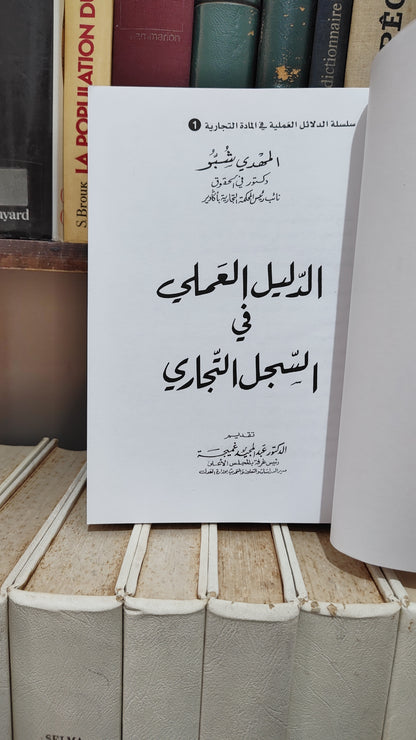 flammarion
dictionnaire
S.Brouk LA POPULATION DU
ayard
سلسلة الدلائل العملية في المادة التجارية 1
المهدي شبو
دكتور في الحقوق
نائب رئيس المحكمة التجارية بأكادير
الدليل العملي
في
السجل التجاري
تقديم
الدكتور عبد المجيد غميجة
رئيس غرفة بالمجلس الأعلى
مدير الدراسات والتعاون والتحديث بوزارة العدل
SELMA